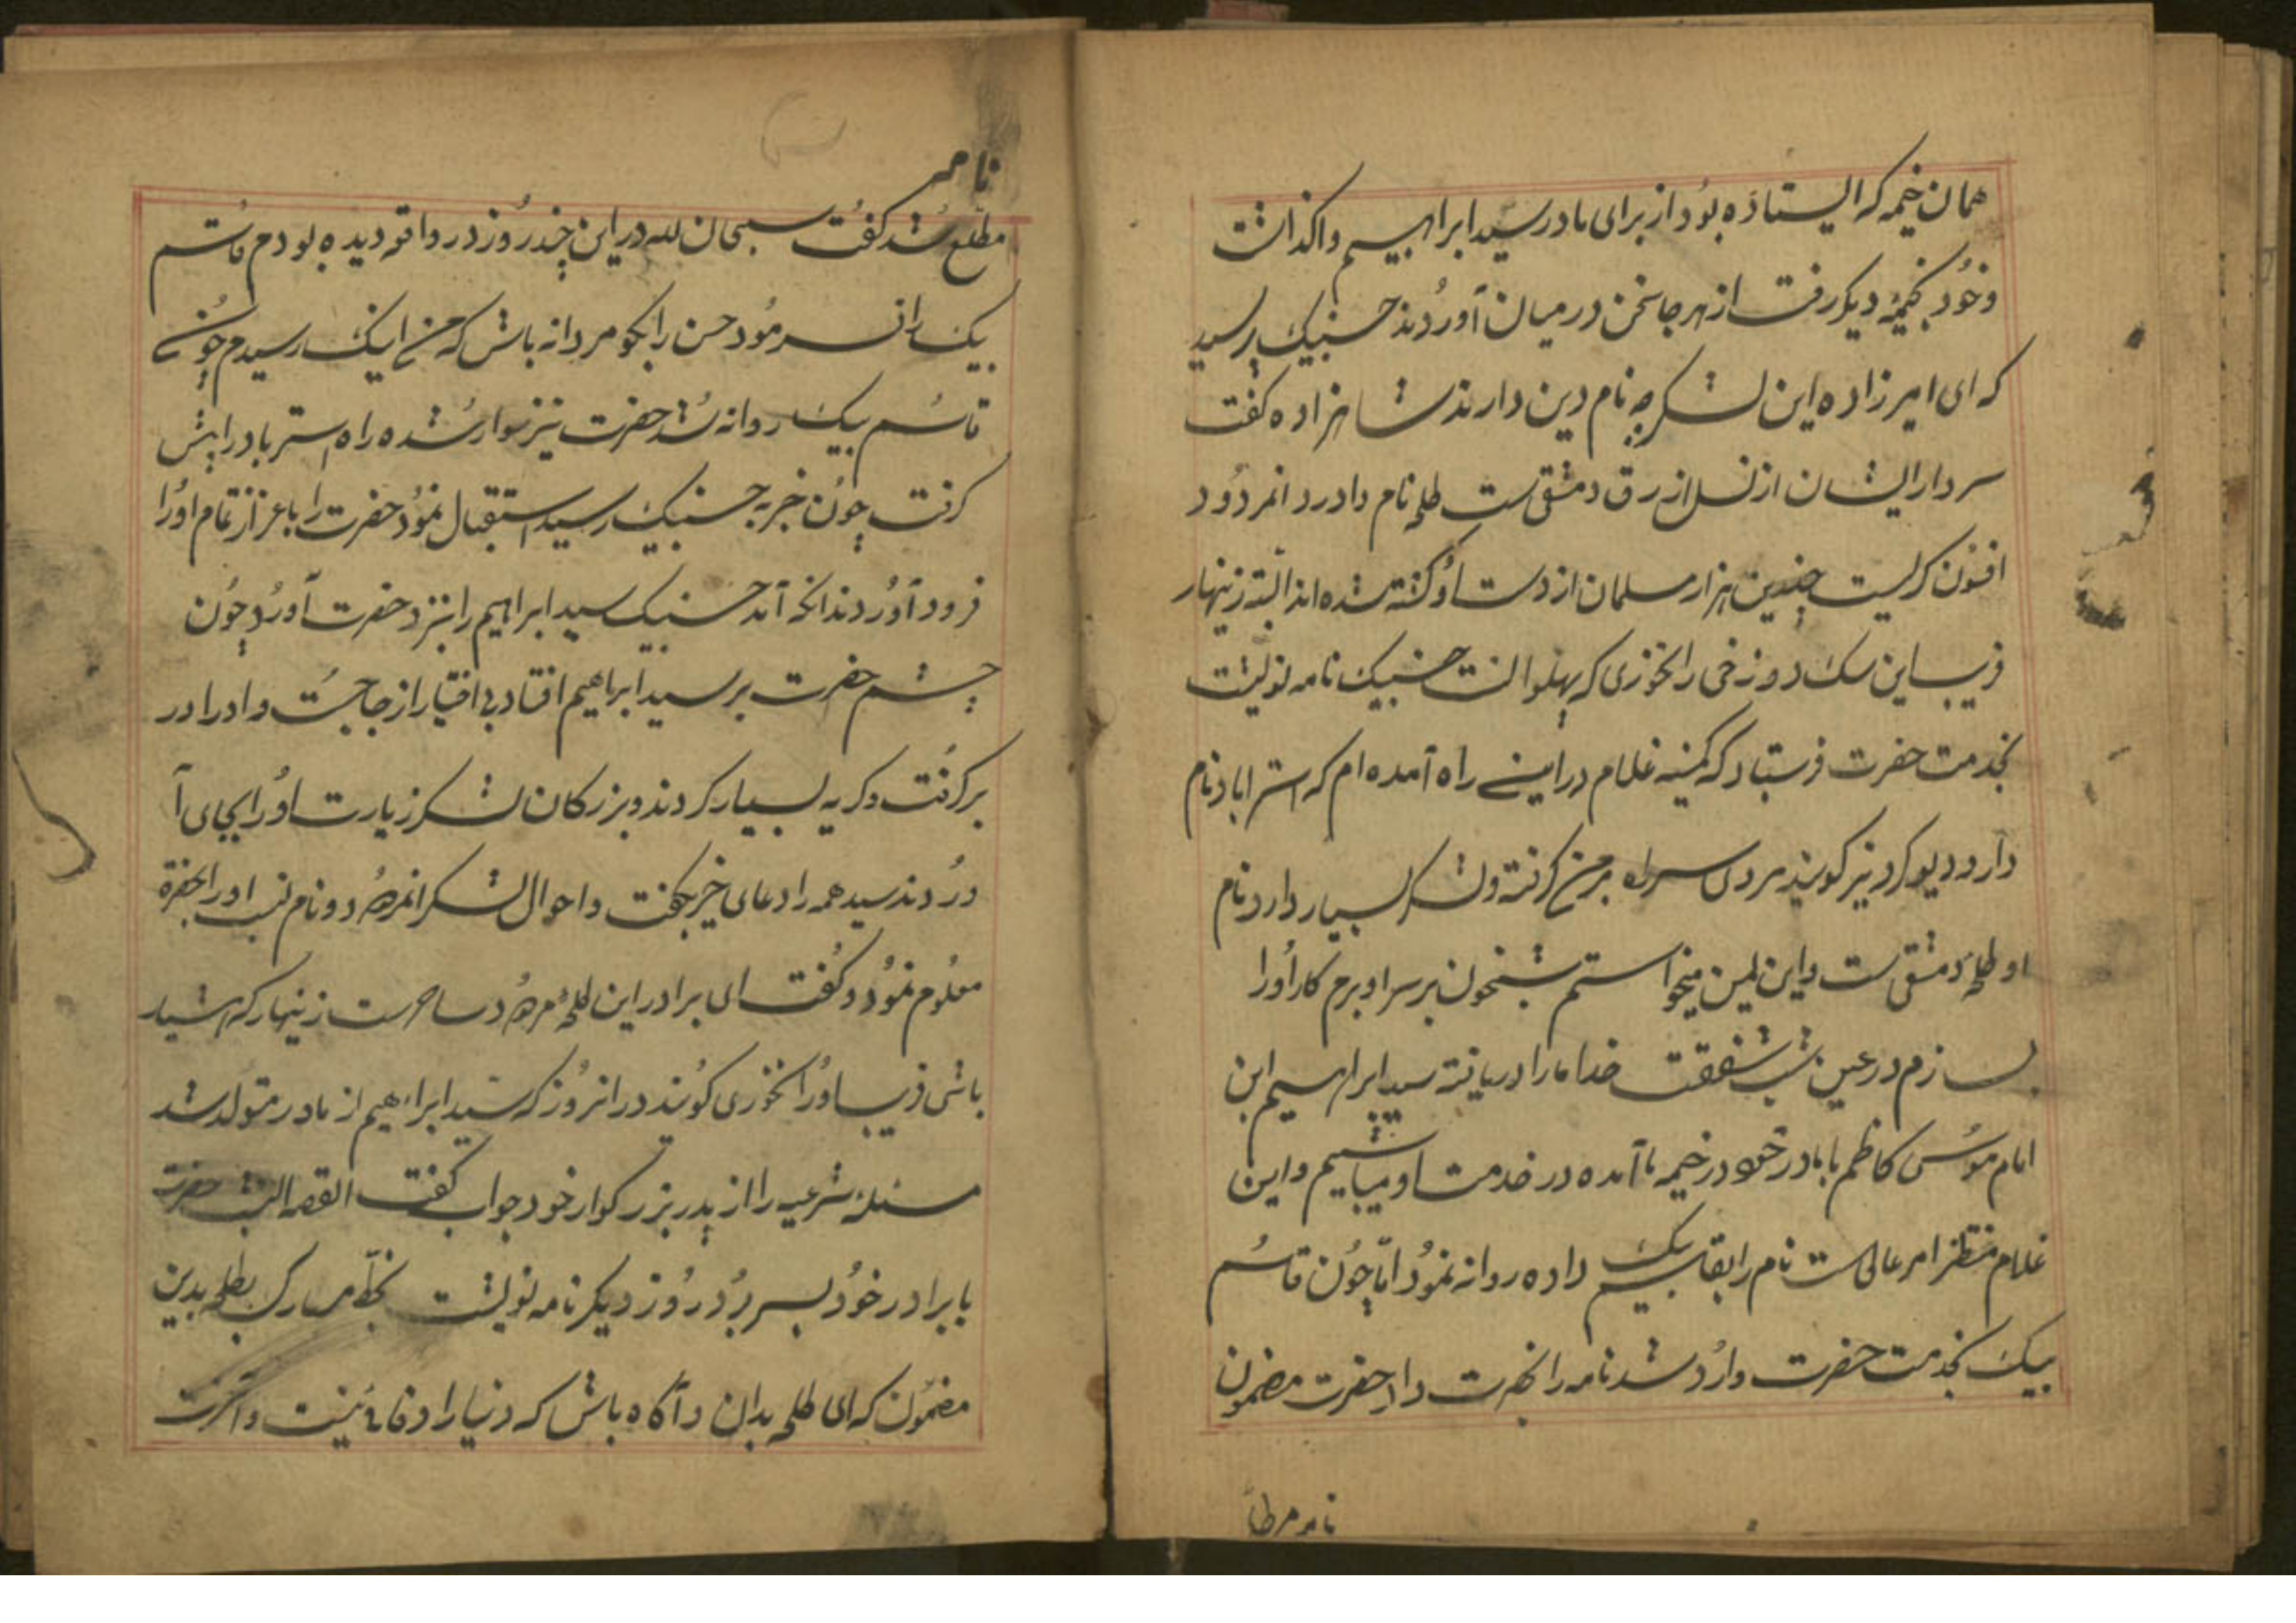 همان خیمه که ایستاده بود از برای مادر سید ابراهیم واکذاشت
وخود بخیمهٔ دیکر رفت از هر جا سخن در میان آوردند حسنبیک پرسید
که ای امیرزاده این لشکر چه نام دین دارند شاهزاده کفت
سردار ایشان از نسل ازرق دمشقی ست طلحه نام دارد و انمردود
افسون کریست چندین هزار مسلمان از دست او کشته شده اند البته زینهار
فریب این سک دوزخی را نخوری که پهلوانست حسنبیک نامه نوشت
بخدمت حضرت فرستاد که کمینه غلام در اینی راه آمده ام که استراباد نام
دارد و دیوکرد نیز کویند مردی سر راه بر من کرفته ولشکر بسیار دارد نام
او طلحهٔ دمشقی ست واین لمین میخواستم شبخون بر سر او برم کار اورا
بسازم در عین شب شفقت خدا مارا دریافته سید ابراهیم ابن
امام موسی کاظم با مادر خود در خیمه ما آمده در خدمت او میباشیم واین
غلام منتظر امر عالی ست نام را بقاسم بیک داده روانه نمود امّا چون قاسم
بیک بخدمت حضرت وارد شد نامه را بحضرت داد حضرت مضمون
نامه مطلع
نامه
مطلع شد کفت سبحان الله در این چند روز در واقعه دیده بودم قاسم
بیک را فرمود حسن را بکو مردانه باش که من اینک رسیدم چون
قاسم بیک روانه شد حضرت نیز سوار شده راه استرباد را پیش
کرفت چون خبر به حسنبیک رسید استقبال نمود حضرت را باعزاز تمام اورا
فرود آوردند انکه آمد حسنبیک سید ابراهیم را بنزد حضرت آورد چون
چشم حضرت بر سید ابراهیم افتاد بی اختیار از جا جست وادرا در
بر کرفت وکریه بسیار کردند وبزرکان لشکر زیارت اورا بجای آ
وردند سید همه را دعای خیر بکفت واحوال لشکر انمردود ونام نسب اورا بحضرة
معلوم نمود وکفت ای برادر این طلحهٔ مردود ساحرست زینهار که هشیار
باشی فریب اورا نخوری کویند در انروز که سید ابراهیم از مادر متولد شد
مسئله شرعیه را از پدر بزرکوار خود جواب کفت القصه الشب حضرت
با برادر خود بسر برد روز دیکر نامه نوشت بخطّ مبارک بطلحه بدین
مضمون که ای طلحه بدان وآکاه باش که دنیا را وفائی نیست وآخرت